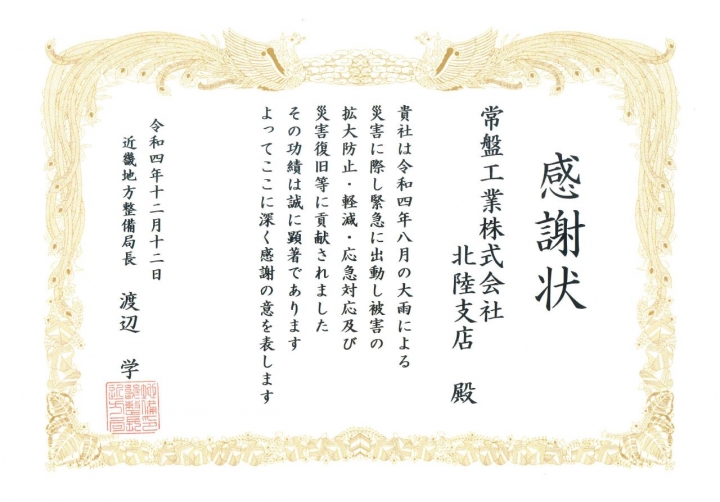 感謝状
常盤工業株式会社
北陸支店 殿
貴社は令和四年八月の大雨による
災害に際し緊急に出動し被害の
拡大防止・軽減・応急対応及び
災害復旧等に貢献されました
その功績は誠に顕著であります
よってここに深く感謝の意を表します
令和四年十二月十二日
近畿地方整備局長 渡辺 学